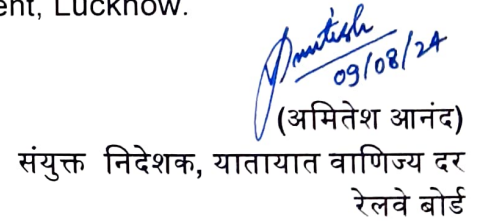 ent, Lucknow.
Amitesh
09/08/24
(अमितेश आनंद)
संयुक्त निदेशक, यातायात वाणिज्य दर
रेलवे बोर्ड